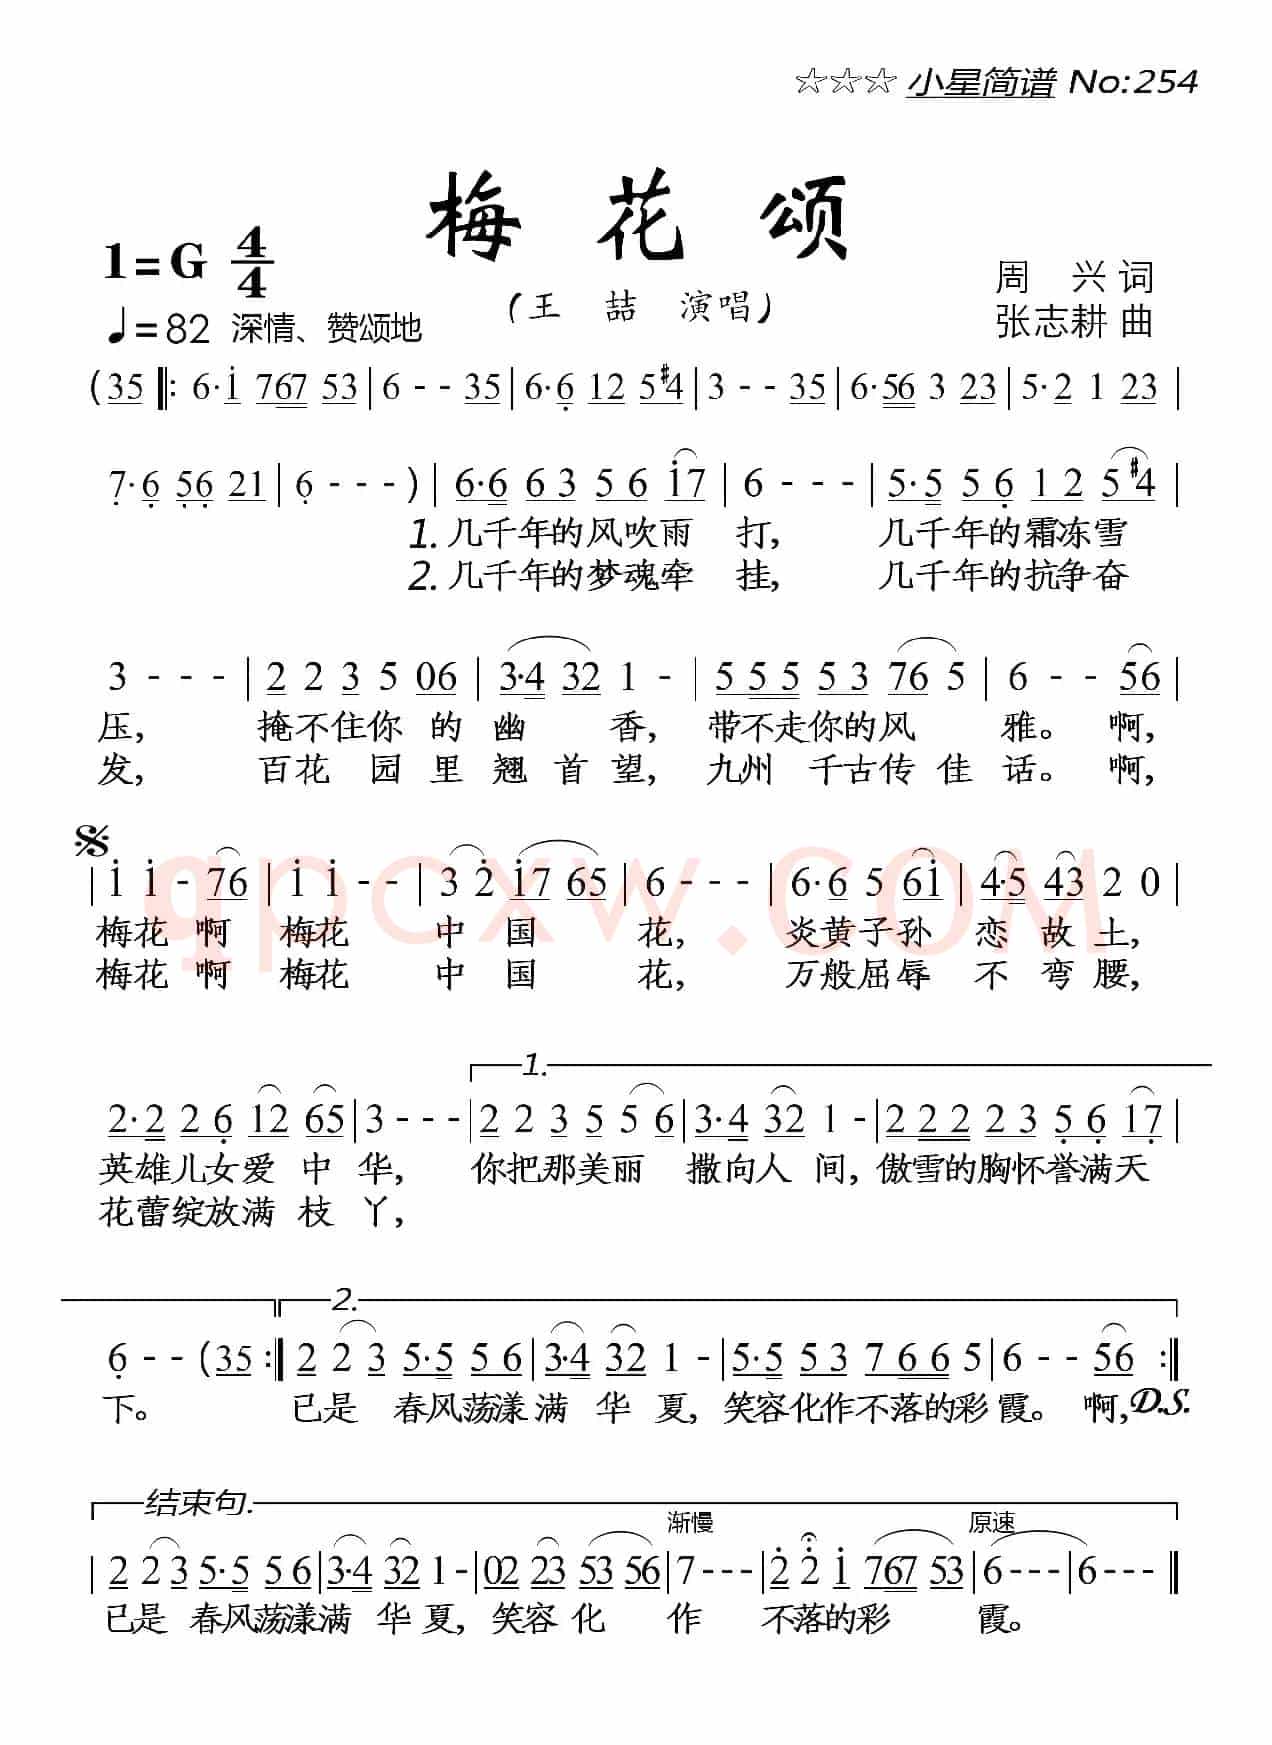 ☆☆☆ 小星简谱 No:254
梅 花 颂
1=G 4/4
周 兴 词
(王 喆 演唱)
张志耕 曲
♩=82 深情、赞颂地
(35 ‖: 6·i 767 53 | 6 - - 35 | 6·6 12 5#4 | 3 - - 35 | 6·56 3 23 | 5·2 1 23 |
7·6 56 21 | 6 - - - ) | 6·6 63 56 i7 | 6 - - - | 5·5 56 12 5#4 |
1. 几千年的风吹雨 打, 几千年的霜冻雪
2. 几千年的梦魂牵 挂, 几千年的抗争奋
3 - - - | 2 2 3 5 06 | 3·4 32 1 - | 5 5 5 5 3 76 5 | 6 - - 56 |
压, 掩不住你 的 幽 香, 带不走你的风 雅。 啊,
发, 百花 园 里 翘 首 望, 九州 千古传 佳 话。 啊,
𝄋
| i i - 76 | i i - - | 3 2 i7 65 | 6 - - - | 6·6 5 6i | 4·5 43 2 0 |
梅花 啊 梅花 中 国 花, 炎黄子孙 恋 故 土,
梅花 啊 梅花 中 国 花, 万般屈辱 不 弯 腰,
1.
2·2 2 6 12 65 | 3 - - - | 2 2 3 5 5 6 | 3·4 32 1 - | 2 2 2 2 3 5·6 17 |
英雄儿女爱 中 华, 你把那美丽 撒向人 间, 傲雪的胸怀誉满天
花蕾绽放满 枝 丫,
2.
6 - - (35 :‖ 2 2 3 5·5 5 6 | 3·4 32 1 - | 5·5 5 3 7 6 6 5 | 6 - - 56 :‖
下。 已是 春风荡漾满 华 夏, 笑容化作不落的彩 霞。 啊, D.S.
结束句.
渐慢 原速
| 2 2 3 5·5 5 6 | 3·4 32 1 - | 02 23 53 56 | 7 - - - | 2 2 i 767 53 | 6 - - - | 6 - - - ‖
已是 春风荡漾满 华 夏, 笑容 化 作 不落的彩 霞。
qpcxw.COM